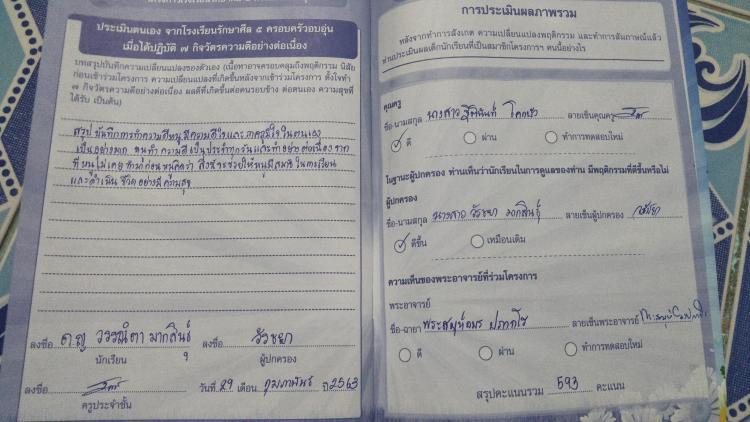 ประเมินตนเอง จากโรงเรียนรักษาศีล ๕ ครอบครัวอบอุ่น
เมื่อได้ปฏิบัติ ๗ กิจวัตรความดีอย่างต่อเนื่อง
บทสรุปบันทึกความเปลี่ยนแปลงของตัวเอง (เนื้อหาอาจครอบคลุมถึงพฤติกรรม นิสัย
ก่อนเข้าร่วมโครงการ ความเปลี่ยนแปลงที่เกิดขึ้นหลังจากเข้าร่วมโครงการ ตั้งใจทำ
๗ กิจวัตรความดีอย่างต่อเนื่อง ผลดีที่เกิดขึ้นต่อคนรอบข้าง ต่อตนเอง ความสุขที่
ได้รับ เป็นต้น)
สรุป บันทึกการทำความดีหนูมีความดีใจและภาคภูมิใจในตนเอง
เป็นอย่างมาก หนูทำ ความดีเป็นประจำทุกวันและทำอย่างต่อเนื่อง จาก
ที่หนูไม่เคยทำมาก่อน หนูคิดว่า สิ่งนี้จะช่วยให้หนูมีสมาธิ ในการเรียน
และดำเนิน ชีวิต อย่างมีความสุข
ลงชื่อ ด.ญ วรรณิตา มากสินธุ์ ลงชื่อ วัรชยา
นักเรียน ผู้ปกครอง
ลงชื่อ
ครูประจำชั้น
วันที่ 29 เดือน กุมภาพันธ์ ปี 2563
การประเมินผลภาพรวม
หลังจากทำการสังเกต ความเปลี่ยนแปลงพฤติกรรม และทำการสัมภาษณ์แล้ว
ท่านประเมินผลเด็กนักเรียนที่เป็นสมาชิกโครงการฯ คนนี้อย่างไร
คุณครู
ชื่อ-นามสกุล นางสาว ลายเซ็นคุณครู
ดี ผ่าน ทำการทดสอบใหม่
ในฐานะผู้ปกครอง ท่านเห็นว่านักเรียนในการดูแลของท่าน มีพฤติกรรมที่ดีขึ้นหรือไม่
ผู้ปกครอง
ชื่อ-นามสกุล นางสาว วัรชยา มากสินธุ์ ลายเซ็นผู้ปกครอง วัรชยา
ดีขึ้น เหมือนเดิม
ความเห็นของพระอาจารย์ที่ร่วมโครงการ
พระอาจารย์
ชื่อ-ฉายา ลายเซ็นพระอาจารย์
ดี ผ่าน ทำการทดสอบใหม่
สรุปคะแนนรวม 593 คะแนน